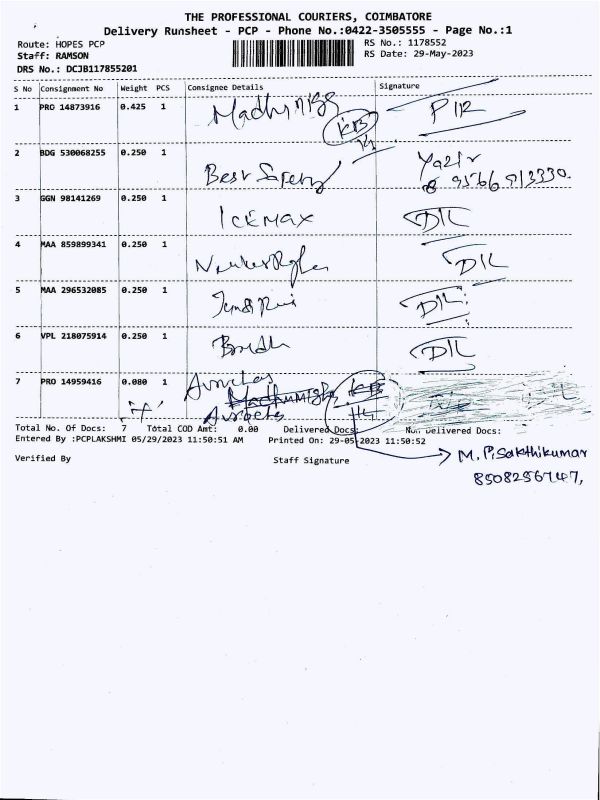 THE PROFESSIONAL COURIERS, COIMBATORE
Delivery Runsheet - PCP - Phone No.:0422-3505555 - Page No.:1
Route: HOPES PCP
RS No.: 1178552
Staff: RAMSON
RS Date: 29-May-2023
DRS No.: DCJB117855201
S No Consignment No Weight PCS Consignee Details Signature
1 PRO 14873916 0.425 1
KB
2 BDG 530068255 0.250 1 Best Safety
3 GGN 98141269 0.250 1 ICEMAX DIL
4 MAA 859899341 0.250 1 DIL
5 MAA 296532085 0.250 1 DIL
6 VPL 218075914 0.250 1 DIL
7 PRO 14959416 0.080 1
Total No. Of Docs: 7 Total COD Amt: 0.00 Delivered Docs: Non Delivered Docs:
Entered By :PCPLAKSHMI 05/29/2023 11:50:51 AM Printed On: 29-05-2023 11:50:52
Verified By Staff Signature
M. P. Sakthikumar
8508256747,